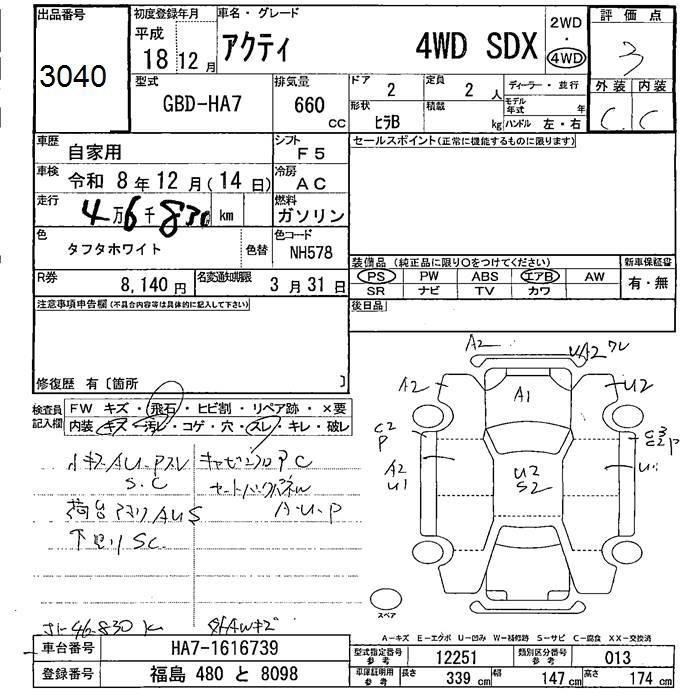 出品番号
3040
初度登録年月
平成
18 12 月
車名・グレード
アクティ 4WD SDX
2WD
・
4WD
評価点
3
外装 内装
C C
型式
GBD-HA7
排気量
660 CC
ドア
2
定員
2 人
形状
ヒラB
積載
kg
ディーラー・並行
モデル年式 年
ハンドル 左・右
車歴
自家用
シフト
F5
車検
令和 8年 12月(14日)
冷房
AC
走行
4万6千830 km
燃料
ガソリン
色
タフタホワイト
色替
色コード
NH578
R券
8,140円
名変通知期限
3月31日
セールスポイント(正常に機能するものに限ります)
装備品(純正品に限り○をつけてください)
PS PW ABS エアB AW
SR ナビ TV カワ
新車保証書
有・無
後日品
注意事項申告欄(不具合内容等は具体的に記入して下さい)
修復歴 有〔箇所 〕
検査員記入欄
FW キズ・飛石・ヒビ割・リペア跡・×要
内装・キズ・汚レ・コゲ・穴・スレ・キレ・破レ
S.C
荷台 AUS
下廻り SC
46.830 k
A2
A2
A2
A1
U2
C2
P
A2
U1
U2
S2
スペア
A-キズ E-エクボ U-凹み W-補修跡 S-サビ C-腐食 XX-交換済
車台番号
HA7-1616739
登録番号
福島 480 と 8098
型式指定番号
参考
12251
類別区分番号
参考
013
車庫証明用
参考
長さ
339 cm
幅
147 cm
高さ
174 cm